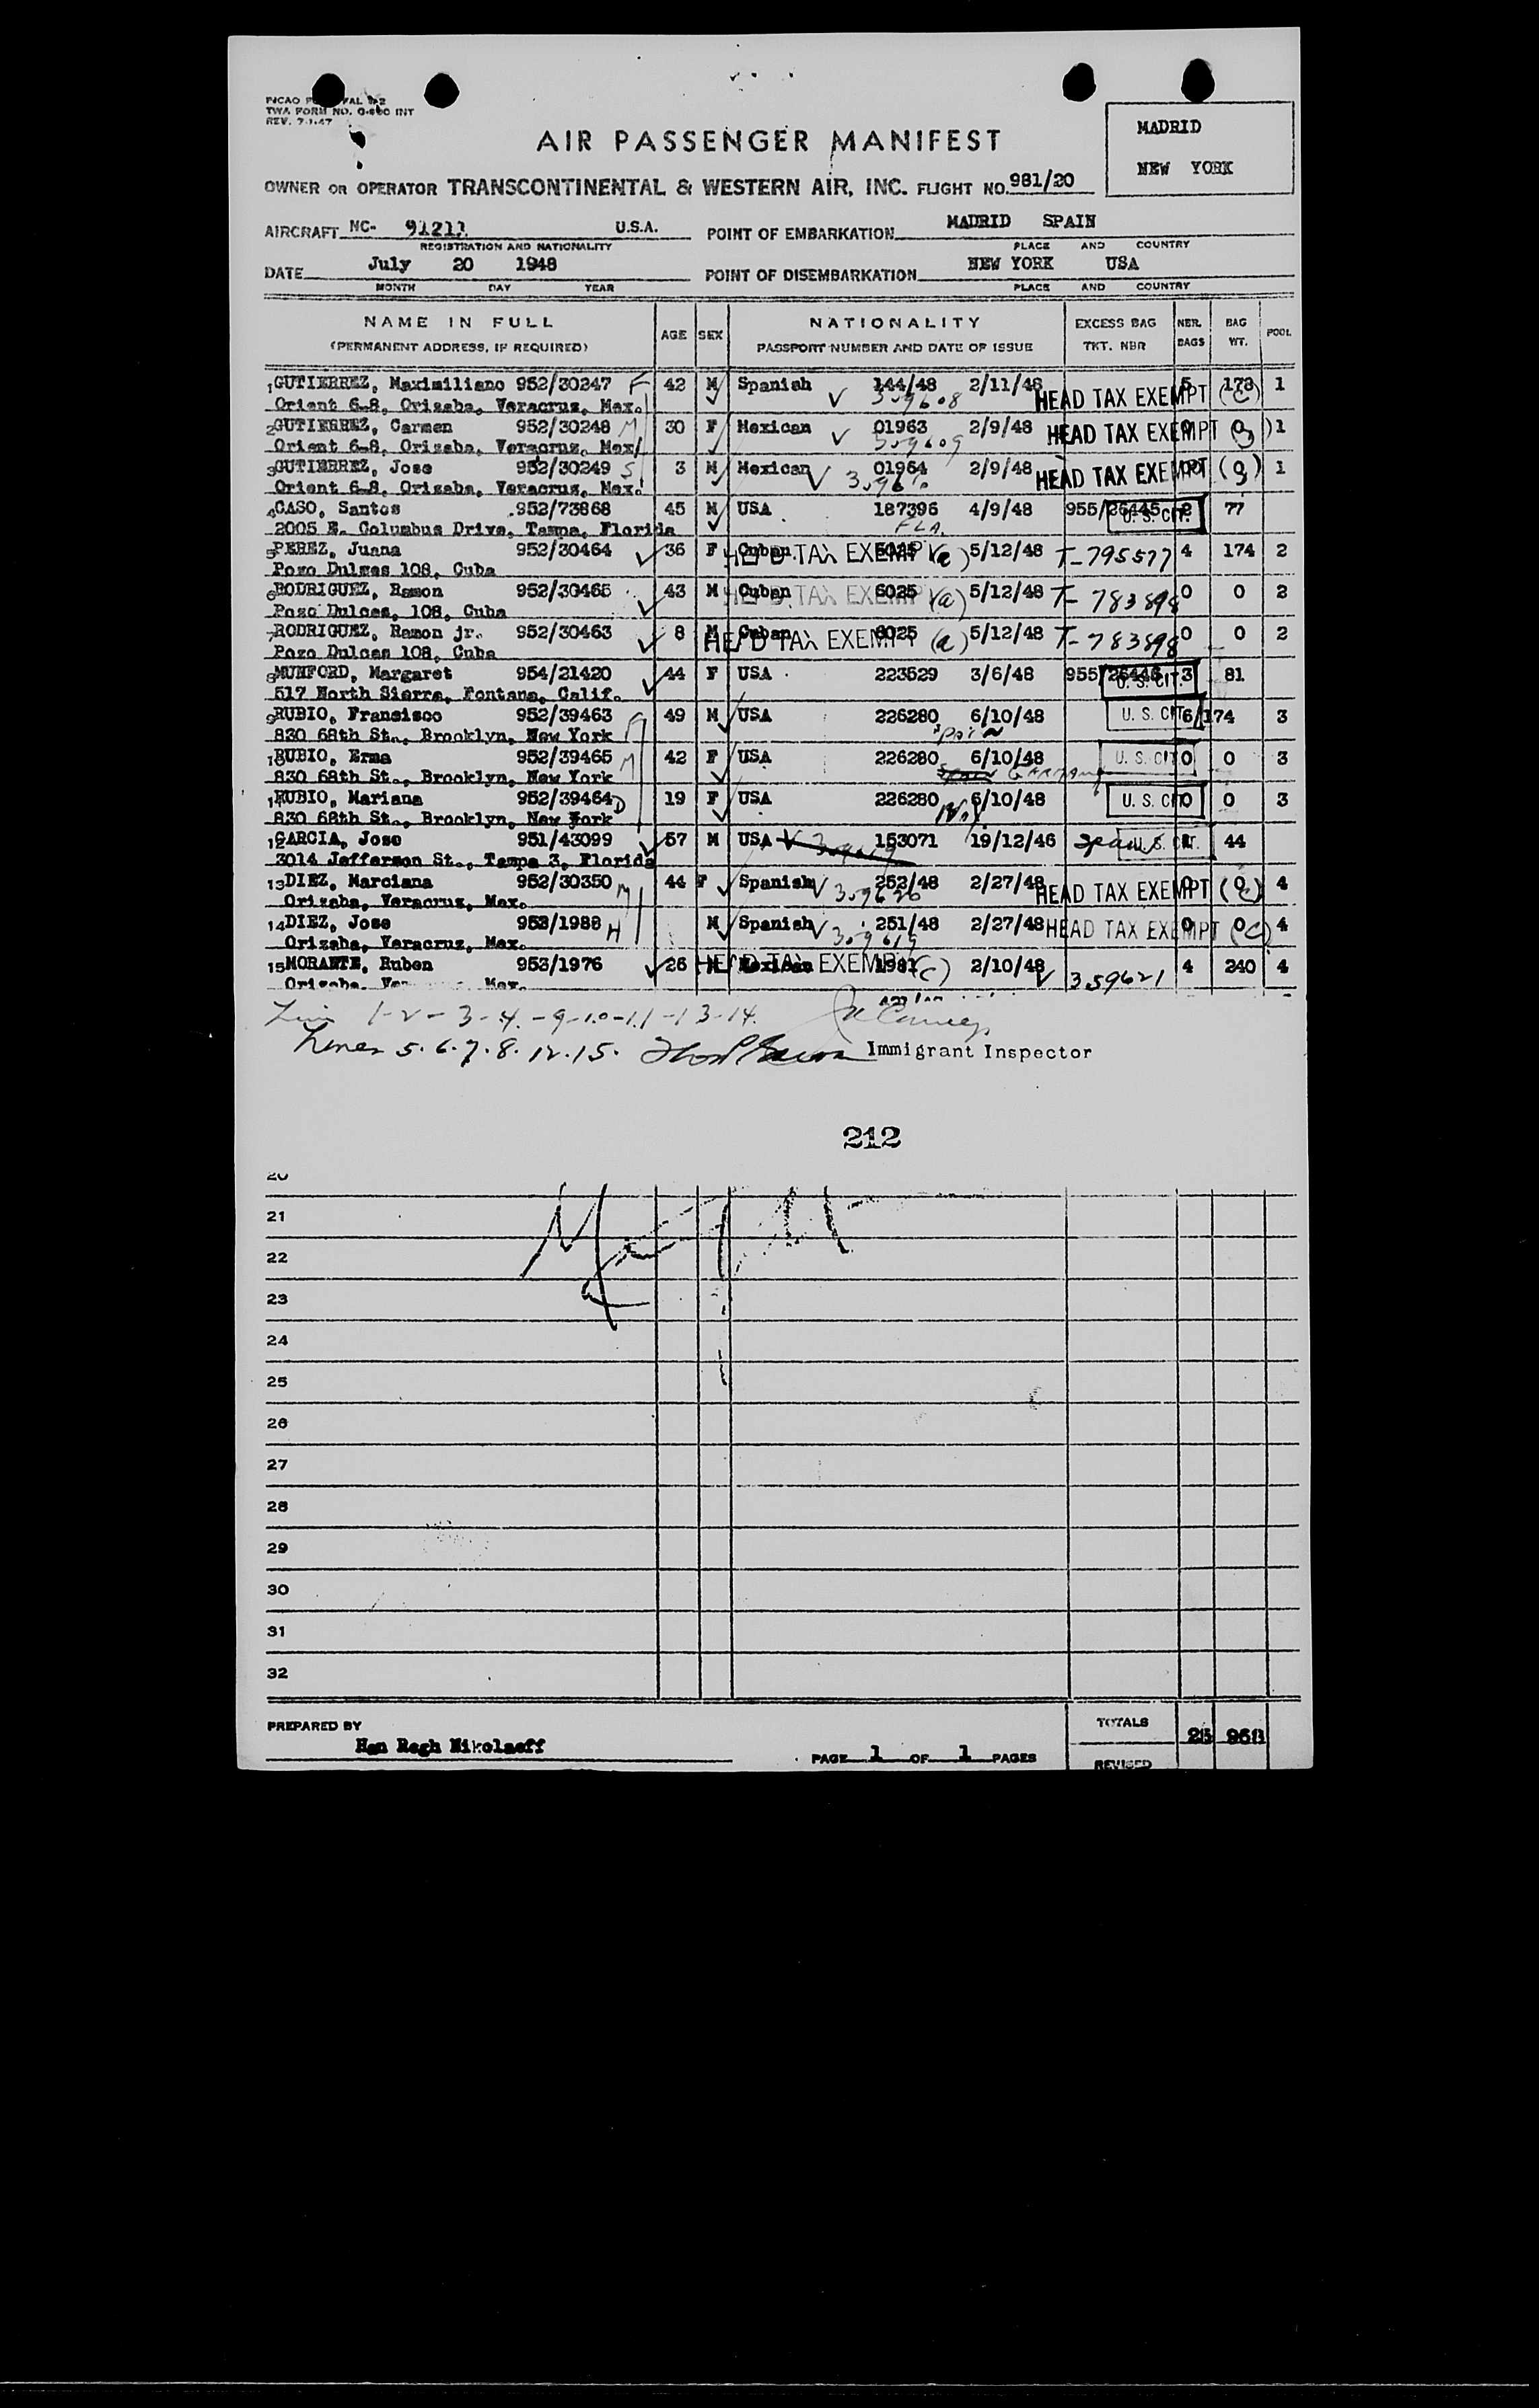 TWA FORM NO. INT
REV. 7-1-47
AIR PASSENGER MANIFEST
MADRID
NEW YORK
OWNER OR OPERATOR TRANSCONTINENTAL & WESTERN AIR, INC. FLIGHT NO. 981/20
AIRCRAFT NC- 91211 U.S.A. POINT OF EMBARKATION MADRID SPAIN
REGISTRATION AND NATIONALITY PLACE AND COUNTRY
DATE July 20 1948 POINT OF DISEMBARKATION NEW YORK USA
MONTH DAY YEAR PLACE AND COUNTRY
NAME IN FULL AGE SEX NATIONALITY EXCESS BAG NBR. BAG POOL
(PERMANENT ADDRESS, IF REQUIRED) PASSPORT NUMBER AND DATE OF ISSUE TKT. NBR BAGS WT.
1 GUTIERREZ, Maximiliano 952/30247 F 42 M Spanish 144/48 2/11/48 HEAD TAX EXEMPT (c) 5 178 1
Orient 6-8, Orizaba, Veracruz, Mex. 359608
2 GUTIERREZ, Carmen 952/30248 M 30 F Mexican 01963 2/9/48 HEAD TAX EXEMPT 0 1
Orient 6-8, Orizaba, Veracruz, Mex/ 359609
3 GUTIERREZ, Jose 952/30249 S 3 M Mexican 01964 2/9/48 HEAD TAX EXEMPT 1
Orient 6-8, Orizaba, Veracruz, Mex.
4 CASO, Santos 952/73868 45 M USA 187396 4/9/48 955/26445 U. S. CIT. 2 77
2005 E. Columbus Drive, Tampa, Florida FLA.
5 PEREZ, Juana 952/30464 36 F Cuban HEAD TAX EXEMPT 6025 (a) 5/12/48 T-795577 4 174 2
Pozo Dulces 108, Cuba
6 RODRIGUEZ, Ramon 952/30465 43 M Cuban HEAD TAX EXEMPT 6025 (a) 5/12/48 T-783898 0 0 2
Pozo Dulces, 108, Cuba
7 RODRIGUEZ, Ramon jr. 952/30463 8 M Cuban HEAD TAX EXEMPT 6025 (a) 5/12/48 T-783898 0 0 2
Pozo Dulces 108, Cuba
8 MUNFORD, Margaret 954/21420 44 F USA 223529 3/6/48 955/26446 U. S. CIT. 3 81
517 North Sierra, Fontana, Calif.
9 RUBIO, Fransisco 952/39463 F 49 M USA 226280 6/10/48 U. S. CIT 6/174 3
830 68th St., Brooklyn, New York Spain
10 RUBIO, Erma 952/39465 M 42 F USA 226280 6/10/48 U. S. CIT 0 0 3
830 68th St., Brooklyn, New York Spain Germany
11 RUBIO, Mariana 952/39464 D 19 F USA 226280 6/10/48 U. S. CIT 0 0 3
830 68th St., Brooklyn, New York N.Y.
12 GARCIA, Jose 951/43099 57 M USA 153071 19/12/46 Spain U. S. CIT. 44
3014 Jefferson St., Tampa 3, Florida
13 DIEZ, Marciana 952/30350 M 44 F Spanish 252/48 2/27/48 HEAD TAX EXEMPT (c) 0 4
Orizaba, Veracruz, Mex. 359620
14 DIEZ, Jose 953/1988 H M Spanish 251/48 2/27/48 HEAD TAX EXEMPT (c) 0 0 4
Orizaba, Veracruz, Mex. 359619
15 MORANTE, Ruben 953/1976 26 M Mexican HEAD TAX EXEMPT 1981 (c) 2/10/48 359621 4 240 4
Orizaba, Mex.
1-2-3-4-9-10-11-13-14.
Lines 5.6.7.8.12.15. Immigrant Inspector
212
20
21
22
23
24
25
26
27
28
29
30
31
32
PREPARED BY Hen Regh Nikolaeff
PAGE 1 OF 1 PAGES
TOTALS 25 968
REVISED